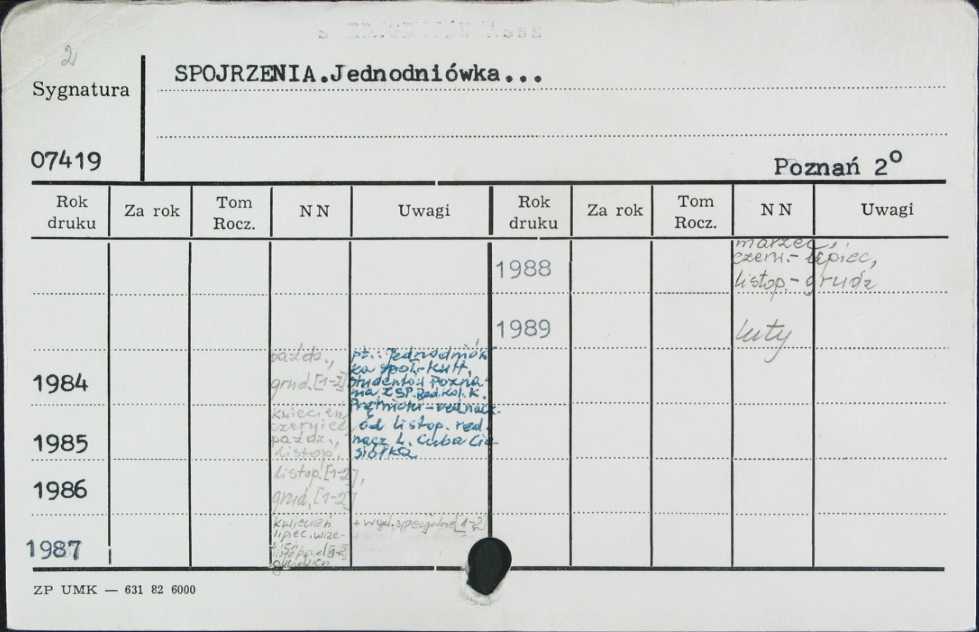 2
Sygnatura
SPOJRZENIA.Jednodniówka...
07419
Poznań 2º
Rok druku Za rok Tom Rocz. NN Uwagi Rok druku Za rok Tom Rocz. NN Uwagi
1988 marzec,
czerw.-lipiec,
listop.-grudz
1989 luty
1984 paźdz.,
grud.[1-2]
pt.: Jednodniów
ka społ-kult.
studentów Pozna-
nia ZSP. Red. kol. K.
1985 kwiecień,
czerwiec,
paźdz.,
listop.
od listop. red.
nacz. L. Cuba Cie-
siółka
1986 listop.[1-2],
grud.[1-2]
1987 kwiecień
lipiec, wrze-
+ wyd. specjalne[1-2]
grudzień
ZP UMK — 631 82 6000